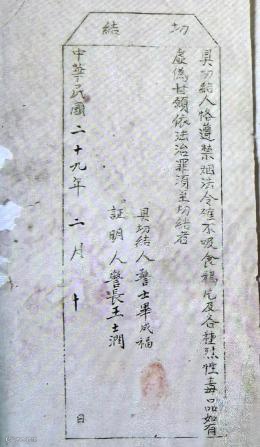 切結
具切結人恪遵禁烟法令確不吸食鴉片及各種烈性毒品如有
虛偽甘願依法治罪須至切結者
具切結人警士畢成福
証明人警長王士潤
中華民國二十九年二月十日